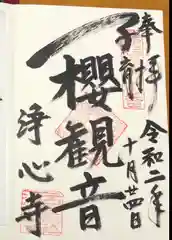 奉拝
令和二年
十月廿四日
子育
櫻観音
浄心寺